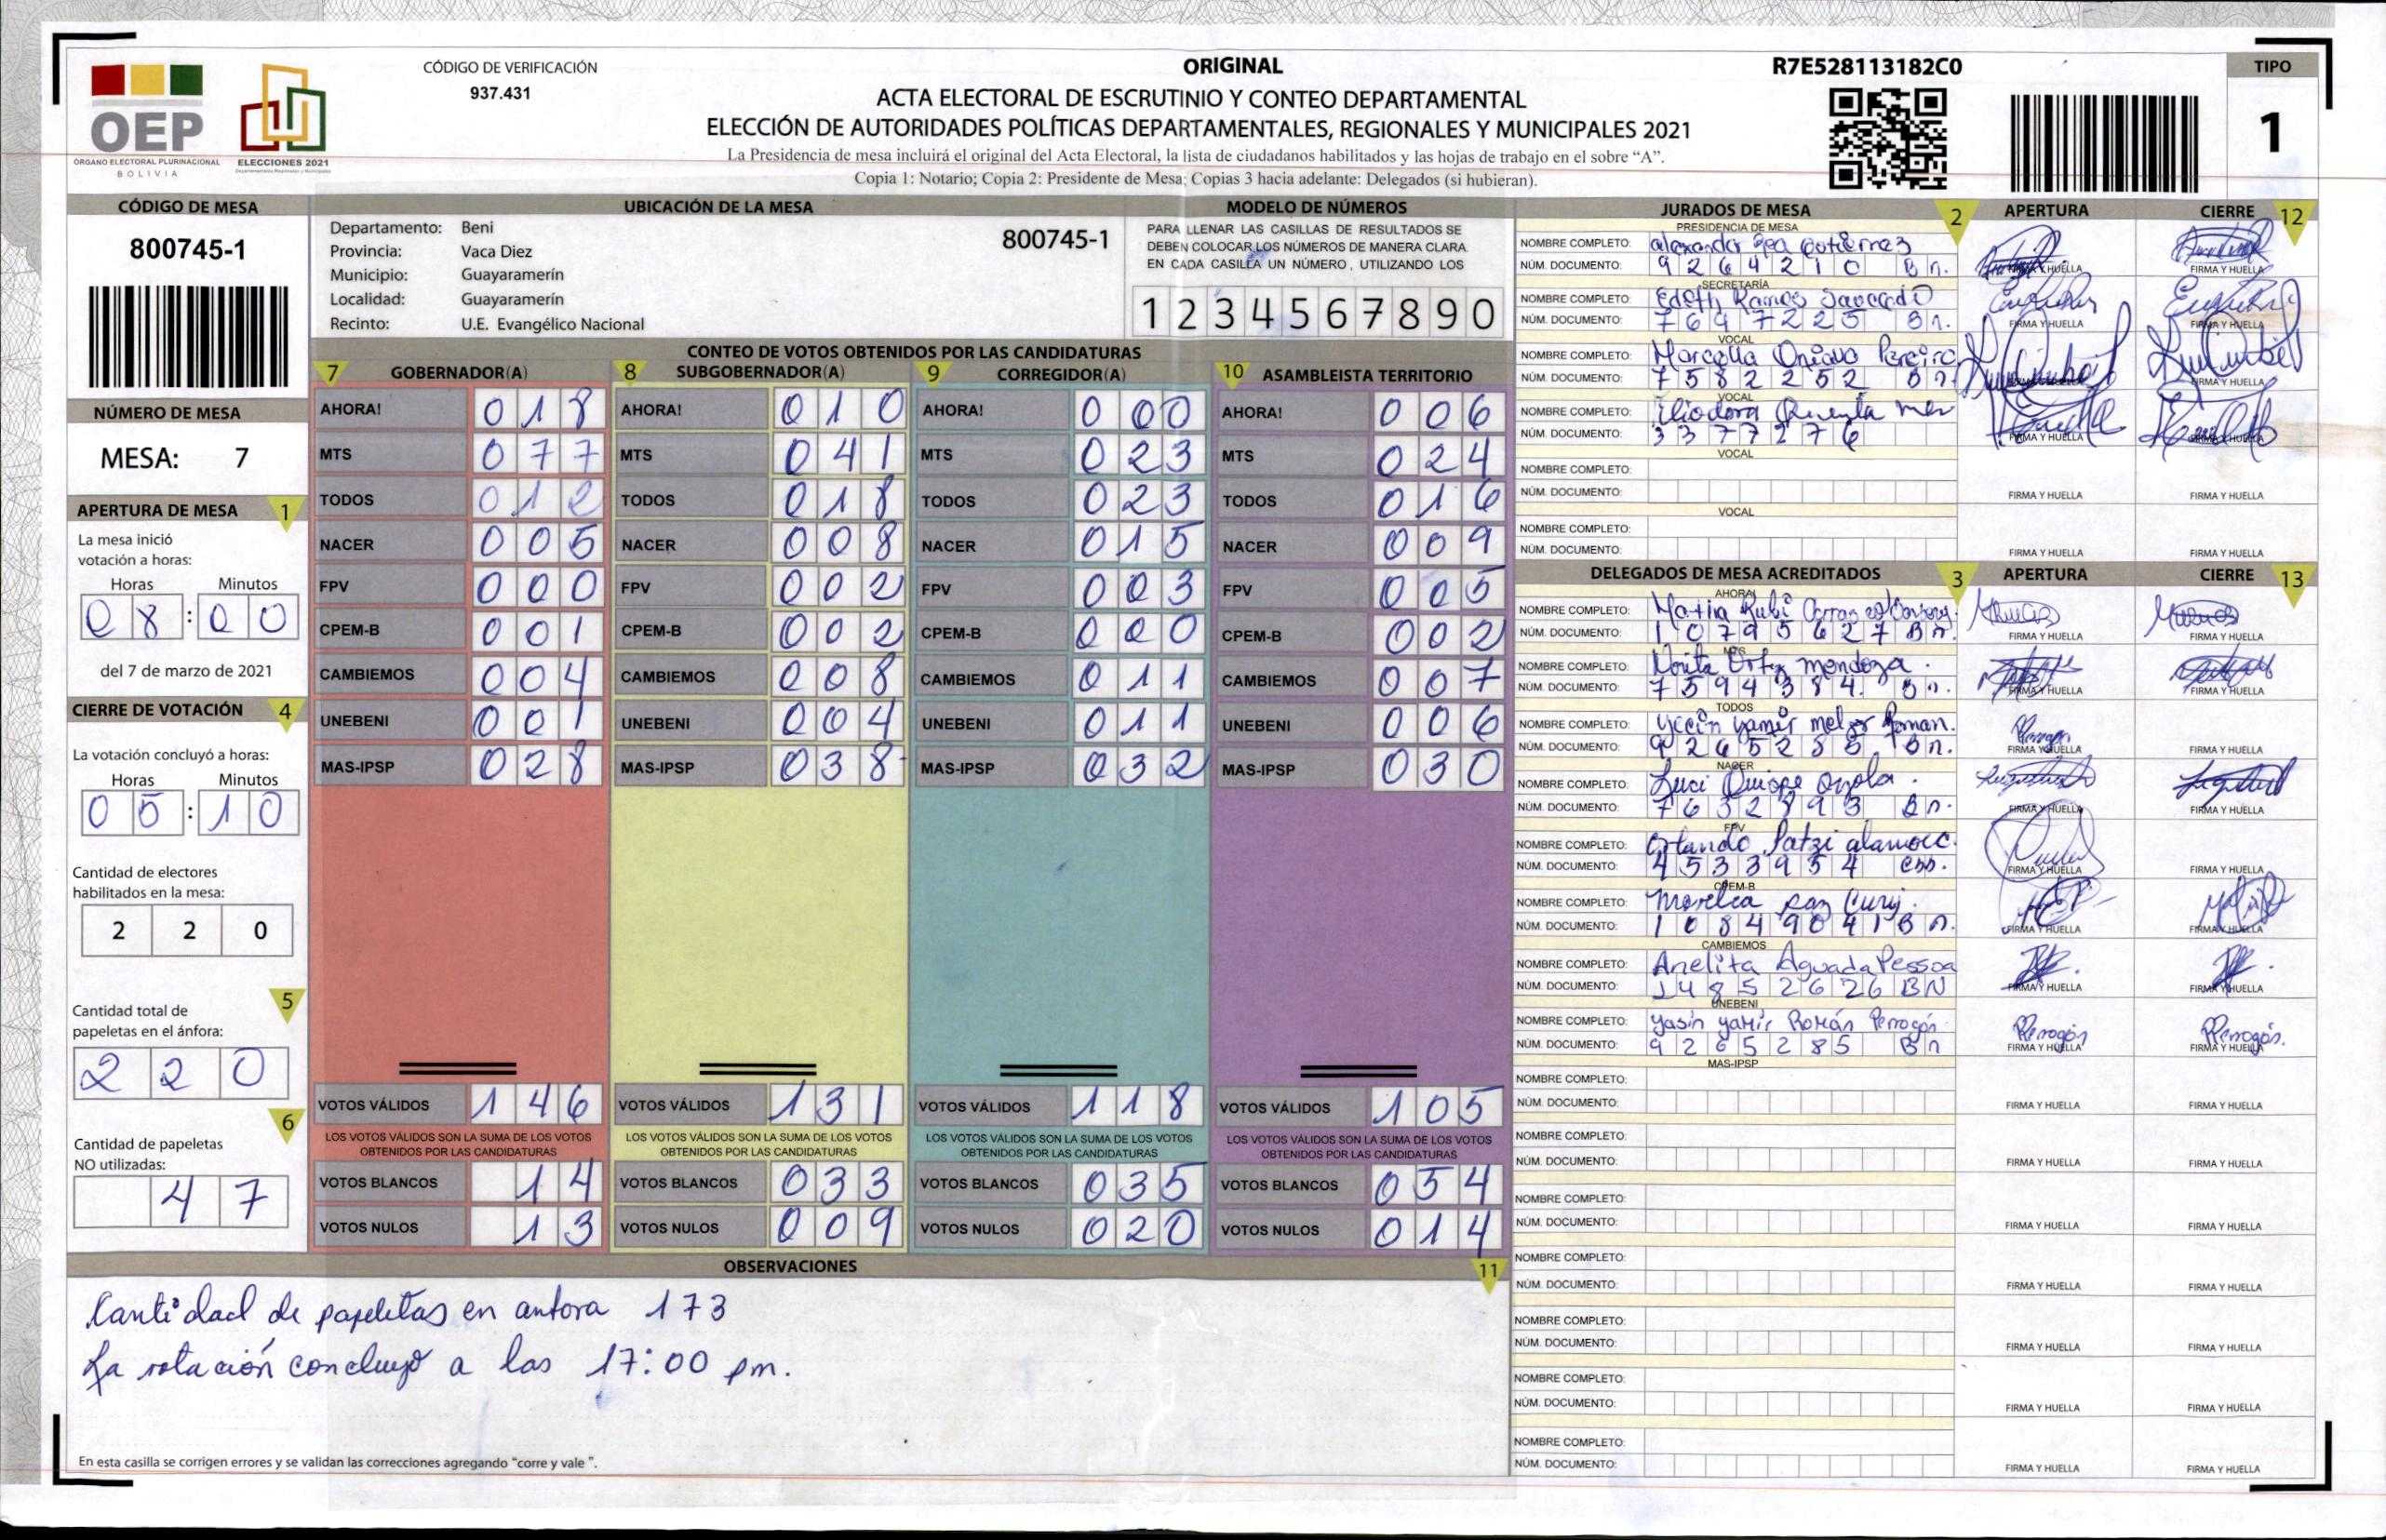 CÓDIGO DE VERIFICACIÓN
937.431
ORIGINAL
R7E528113182C0
TIPO
1
OEP
ÓRGANO ELECTORAL PLURINACIONAL
BOLIVIA
ELECCIONES 2021
ACTA ELECTORAL DE ESCRUTINIO Y CONTEO DEPARTAMENTAL
ELECCIÓN DE AUTORIDADES POLÍTICAS DEPARTAMENTALES, REGIONALES Y MUNICIPALES 2021
La Presidencia de mesa incluirá el original del Acta Electoral, la lista de ciudadanos habilitados y las hojas de trabajo en el sobre “A”.
Copia 1: Notario; Copia 2: Presidente de Mesa; Copias 3 hacia adelante: Delegados (si hubieran).
CÓDIGO DE MESA
800745-1
NÚMERO DE MESA
MESA: 7
APERTURA DE MESA 1
La mesa inició
votación a horas:
Horas Minutos
08:00
del 7 de marzo de 2021
CIERRE DE VOTACIÓN 4
La votación concluyó a horas:
Horas Minutos
05:10
Cantidad de electores
habilitados en la mesa:
220
5
Cantidad total de
papeletas en el ánfora:
220
6
Cantidad de papeletas
NO utilizadas:
47
UBICACIÓN DE LA MESA
Departamento: Beni
Provincia: Vaca Diez
Municipio: Guayaramerín
Localidad: Guayaramerín
Recinto: U.E. Evangélico Nacional
800745-1
MODELO DE NÚMEROS
PARA LLENAR LAS CASILLAS DE RESULTADOS SE
DEBEN COLOCAR LOS NÚMEROS DE MANERA CLARA.
EN CADA CASILLA UN NÚMERO, UTILIZANDO LOS
1 2 3 4 5 6 7 8 9 0
CONTEO DE VOTOS OBTENIDOS POR LAS CANDIDATURAS
7 GOBERNADOR(A) 8 SUBGOBERNADOR(A) 9 CORREGIDOR(A) 10 ASAMBLEISTA TERRITORIO
AHORA! 018 AHORA! 010 AHORA! 000 AHORA! 006
MTS 077 MTS 041 MTS 023 MTS 024
TODOS 012 TODOS 018 TODOS 023 TODOS 016
NACER 005 NACER 008 NACER 015 NACER 009
FPV 000 FPV 002 FPV 003 FPV 005
CPEM-B 001 CPEM-B 002 CPEM-B 000 CPEM-B 002
CAMBIEMOS 004 CAMBIEMOS 008 CAMBIEMOS 011 CAMBIEMOS 007
UNEBENI 001 UNEBENI 004 UNEBENI 011 UNEBENI 006
MAS-IPSP 028 MAS-IPSP 038 MAS-IPSP 032 MAS-IPSP 030
VOTOS VÁLIDOS 146 VOTOS VÁLIDOS 131 VOTOS VÁLIDOS 118 VOTOS VÁLIDOS 105
LOS VOTOS VÁLIDOS SON LA SUMA DE LOS VOTOS LOS VOTOS VÁLIDOS SON LA SUMA DE LOS VOTOS LOS VOTOS VÁLIDOS SON LA SUMA DE LOS VOTOS LOS VOTOS VÁLIDOS SON LA SUMA DE LOS VOTOS
OBTENIDOS POR LAS CANDIDATURAS OBTENIDOS POR LAS CANDIDATURAS OBTENIDOS POR LAS CANDIDATURAS OBTENIDOS POR LAS CANDIDATURAS
VOTOS BLANCOS 14 VOTOS BLANCOS 033 VOTOS BLANCOS 035 VOTOS BLANCOS 054
VOTOS NULOS 13 VOTOS NULOS 009 VOTOS NULOS 020 VOTOS NULOS 014
OBSERVACIONES 11
Cantidad de papeletas en anfora 173
La votación concluyó a las 17:00 pm.
En esta casilla se corrigen errores y se validan las correcciones agregando “corre y vale ”.
JURADOS DE MESA 2 APERTURA CIERRE 12
PRESIDENCIA DE MESA
NOMBRE COMPLETO: Gutierrez
NÚM. DOCUMENTO: 9264210 Bn. FIRMA Y HUELLA FIRMA Y HUELLA
SECRETARÍA
NOMBRE COMPLETO: Edith Ramos
NÚM. DOCUMENTO: 7647225 Bn. FIRMA Y HUELLA FIRMA Y HUELLA
VOCAL
NOMBRE COMPLETO:
NÚM. DOCUMENTO: 7582252 Bn FIRMA Y HUELLA
VOCAL
NOMBRE COMPLETO:
NÚM. DOCUMENTO: 3377276 FIRMA Y HUELLA FIRMA Y HUELLA
VOCAL
NOMBRE COMPLETO:
NÚM. DOCUMENTO: FIRMA Y HUELLA FIRMA Y HUELLA
VOCAL
NOMBRE COMPLETO:
NÚM. DOCUMENTO: FIRMA Y HUELLA FIRMA Y HUELLA
DELEGADOS DE MESA ACREDITADOS 3 APERTURA CIERRE 13
AHORA!
NOMBRE COMPLETO:
NÚM. DOCUMENTO: 10795627 Bn. FIRMA Y HUELLA FIRMA Y HUELLA
MTS
NOMBRE COMPLETO: Ortiz mendoza.
NÚM. DOCUMENTO: 7594384. Bn. FIRMA Y HUELLA FIRMA Y HUELLA
TODOS
NOMBRE COMPLETO:
NÚM. DOCUMENTO: 9265285. Bn. FIRMA Y HUELLA FIRMA Y HUELLA
NACER
NOMBRE COMPLETO: Luci Quispe
NÚM. DOCUMENTO: 7632893 Bn. FIRMA Y HUELLA FIRMA Y HUELLA
FPV
NOMBRE COMPLETO: Orlando Patzi
NÚM. DOCUMENTO: 4533954 FIRMA Y HUELLA FIRMA Y HUELLA
CPEM-B
NOMBRE COMPLETO:
NÚM. DOCUMENTO: 10849041 Bn. FIRMA Y HUELLA FIRMA Y HUELLA
CAMBIEMOS
NOMBRE COMPLETO: Anelita Aguada Pessoa
NÚM. DOCUMENTO: 14852626 BN FIRMA Y HUELLA FIRMA Y HUELLA
UNEBENI
NOMBRE COMPLETO: Yasin Yamir Román Perrogón
NÚM. DOCUMENTO: 9265285 Bn FIRMA Y HUELLA FIRMA Y HUELLA
MAS-IPSP
NOMBRE COMPLETO:
NÚM. DOCUMENTO: FIRMA Y HUELLA FIRMA Y HUELLA
NOMBRE COMPLETO:
NÚM. DOCUMENTO: FIRMA Y HUELLA FIRMA Y HUELLA
NOMBRE COMPLETO:
NÚM. DOCUMENTO: FIRMA Y HUELLA FIRMA Y HUELLA
NOMBRE COMPLETO:
NÚM. DOCUMENTO: FIRMA Y HUELLA FIRMA Y HUELLA
NOMBRE COMPLETO:
NÚM. DOCUMENTO: FIRMA Y HUELLA FIRMA Y HUELLA
NOMBRE COMPLETO:
NÚM. DOCUMENTO: FIRMA Y HUELLA FIRMA Y HUELLA
NOMBRE COMPLETO:
NÚM. DOCUMENTO: FIRMA Y HUELLA FIRMA Y HUELLA